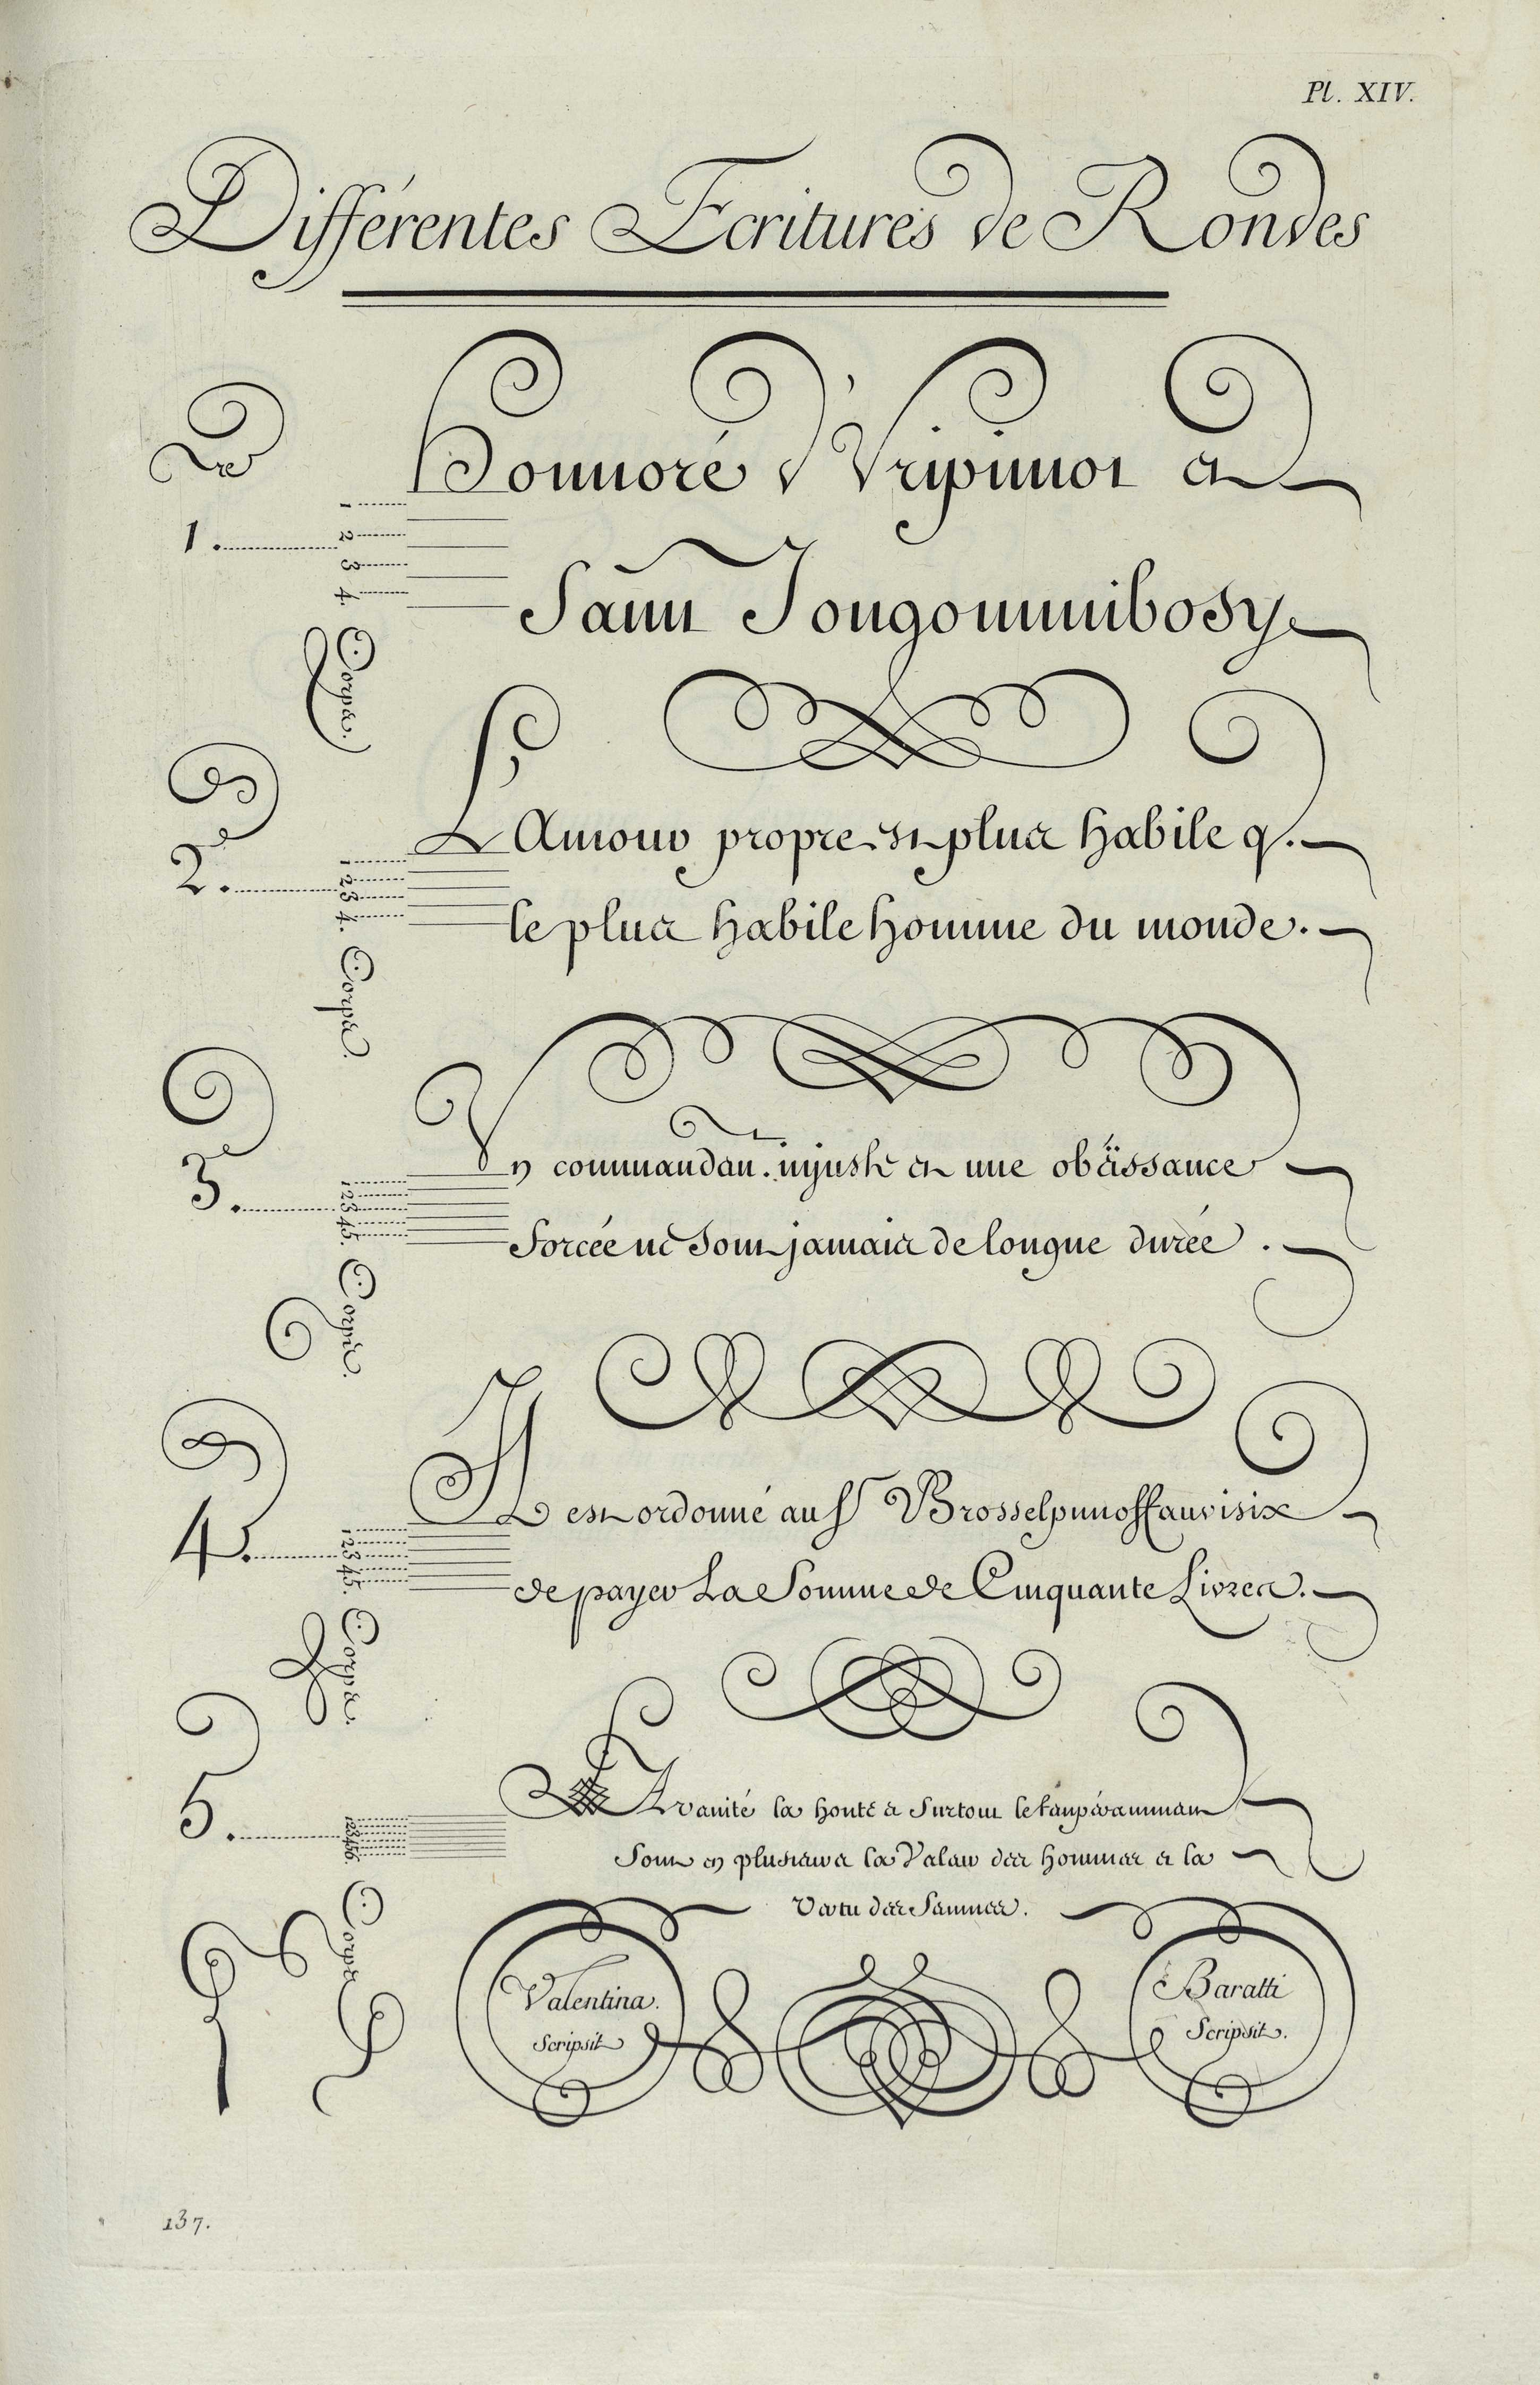 Pl. XIV.
Différentes Ecritures de Rondes
Honnoré d'Vripinnot et
1. 1 2 3 4. Corps.
Saint
2. 1 2 3 4. Corps.
L'Amour propre est plus habile q.
le plus habile homme du monde.
3. 1 2 3 4 5. Corps.
Vn commandant injuste et une obeïssance
forcée ne sont jamais de longue durée.
4. 1 2 3 4 5. Corps.
Il est ordonné au Sr
de payer La Somme de Cinquante Livres.
5. 1 2 3 4 5 6. Corps
La vanité la honte et surtout le tempérammant
font en plusieurs la Valeur des hommes et la
Vertu des Femmes.
Valentina. Scripsit
Baratti Scripsit.
137.